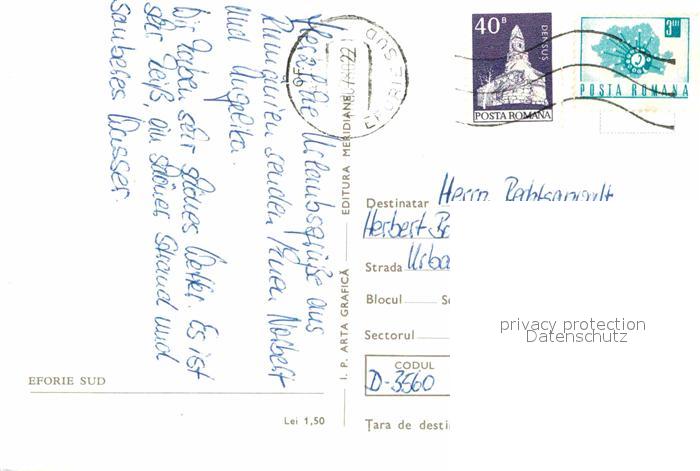 Herzliche Urlaubsgrüße aus
Rumänien senden Ihnen Norbert
und Angelika.
Wir haben sehr schönes Wetter. Es ist
sehr heiß, ein schöner Strand und
sauberes Wasser.
EFORIE SUD
Lei 1,50
I. P. ARTA GRAFICĂ — EDITURA MERIDIANE
EFORIE SUD
40 B
DENSUS
POSTA ROMANA
3 LEI
POSTA ROMANA
Destinatar Herrn Rechtsanwalt
Herbert
Strada
Blocul
Sectorul
CODUL
D-3560
Țara de desti
privacy protection
Datenschutz